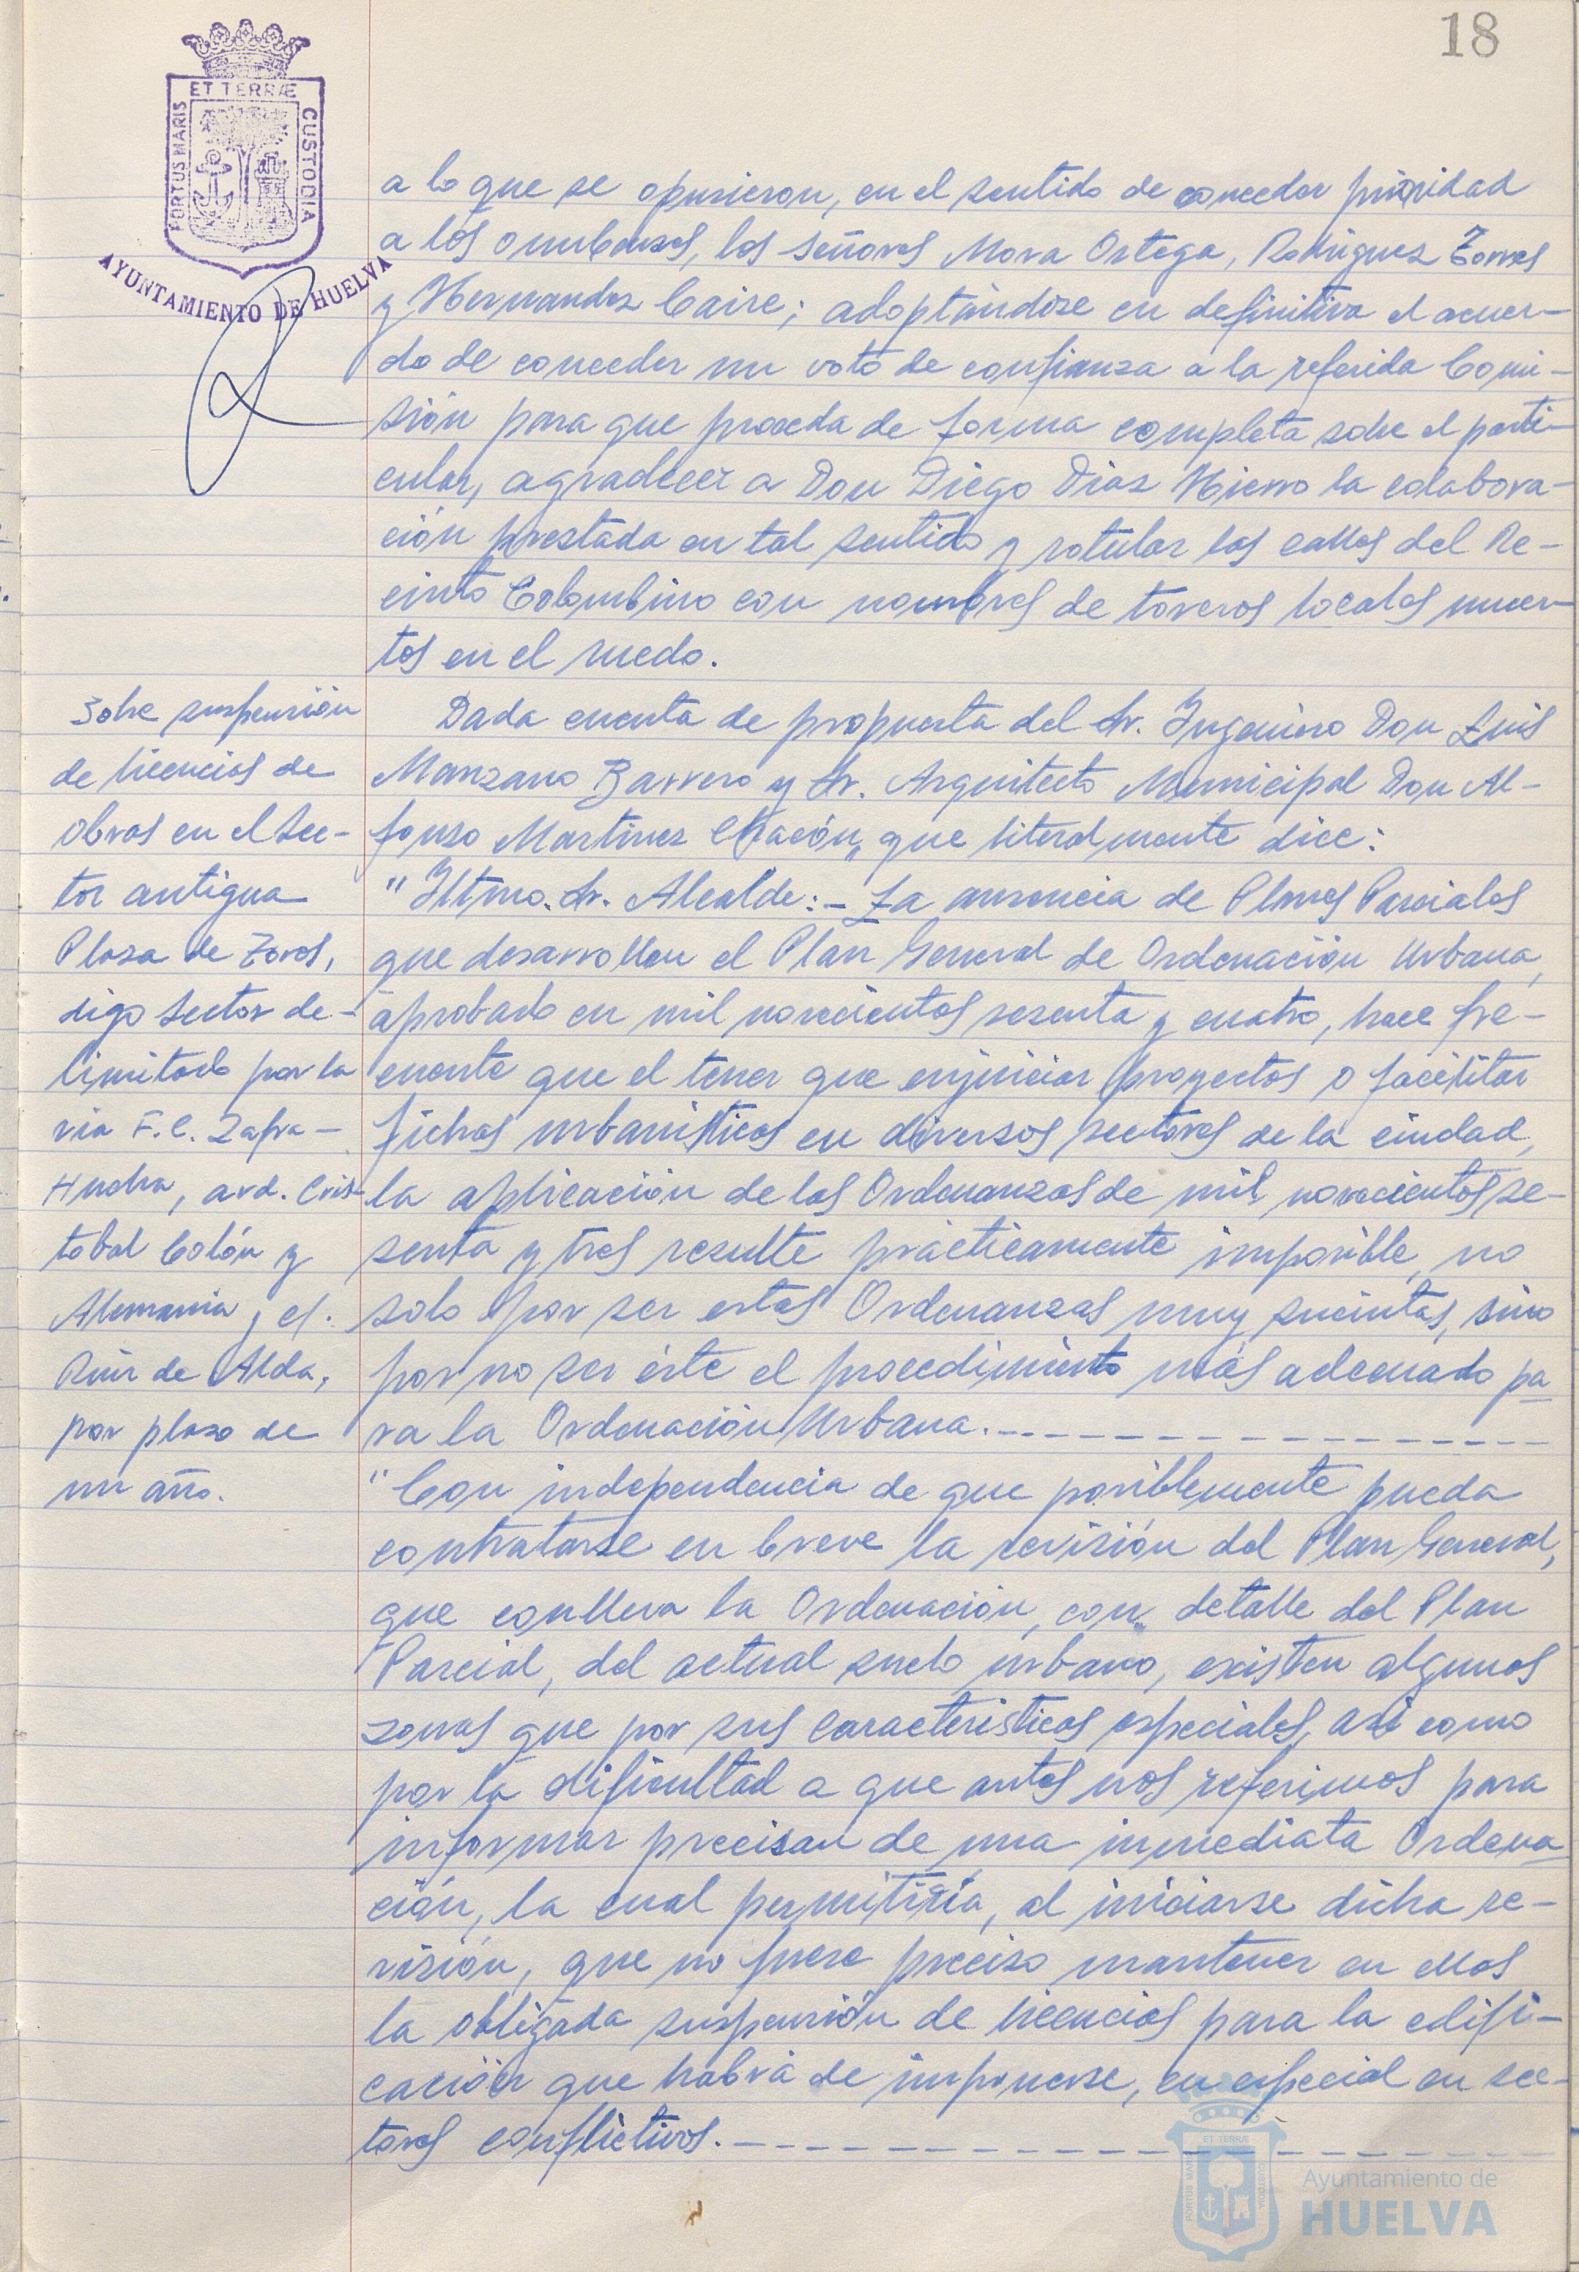 18
ET TERRÆ
PORTUS MARIS
CUSTODIA
AYUNTAMIENTO DE HUELVA
a lo que se opusieron, en el sentido de conceder prioridad
a los onubenses, los señores Mora Ortega, Rodríguez Torres
y Hernandez Caire; adoptándose en definitiva el acuer-
do de conceder un voto de confianza a la referida Comi-
sión para que proceda de forma completa sobre el parti-
cular, agradecer a Don Diego Diaz Hierro la colabora-
ción prestada en tal sentido y rotular las calles del Re-
cinto Colombino con nombres de toreros locales muer-
tos en el ruedo.
Sobre suspensión
de licencias de
obras en el Sec-
tor antigua
Plaza de Toros,
digo Sector de-
limitado por la
via F.C. Zafra-
Huelva, avd. Cris-
tobal Colón y
Alemania, cl.
Ruiz de Alda,
por plazo de
un año.
Dada cuenta de propuesta del Sr. Ingeniero Don Luis
Manzano Barrero y Sr. Arquitecto Municipal Don Al-
fonso Martinez Chacón, que literalmente dice:
"Iltmo. Sr. Alcalde:- La ausencia de Planes Parciales
que desarrollen el Plan General de Ordenación Urbana,
aprobado en mil novecientos sesenta y cuatro, hace fre-
cuente que el tener que enjuiciar proyectos o facilitar
fichas urbanisticas en diversos sectores de la ciudad,
la aplicación de las Ordenanzas de mil novecientos se-
senta y tres resulte prácticamente imposible, no
solo por ser estas Ordenanzas muy sucintas, sino
por no ser éste el procedimiento más adecuado pa-
ra la Ordenación Urbana.
"Con independencia de que posiblemente pueda
contratarse en breve la revisión del Plan General,
que conlleva la Ordenación, con detalle del Plan
Parcial, del actual suelo urbano, existen algunas
zonas que por sus caracteristicas especiales, asi como
por la dificultad a que antes nos referimos para
informar precisan de una inmediata Ordena-
ción, la cual permitiría, al iniciarse dicha re-
visión, que no fuere preciso mantener en ellas
la obligada suspensión de licencias para la edifi-
cación que habrá de imponerse, en especial en sec-
tores conflictivos.
Ayuntamiento de
HUELVA